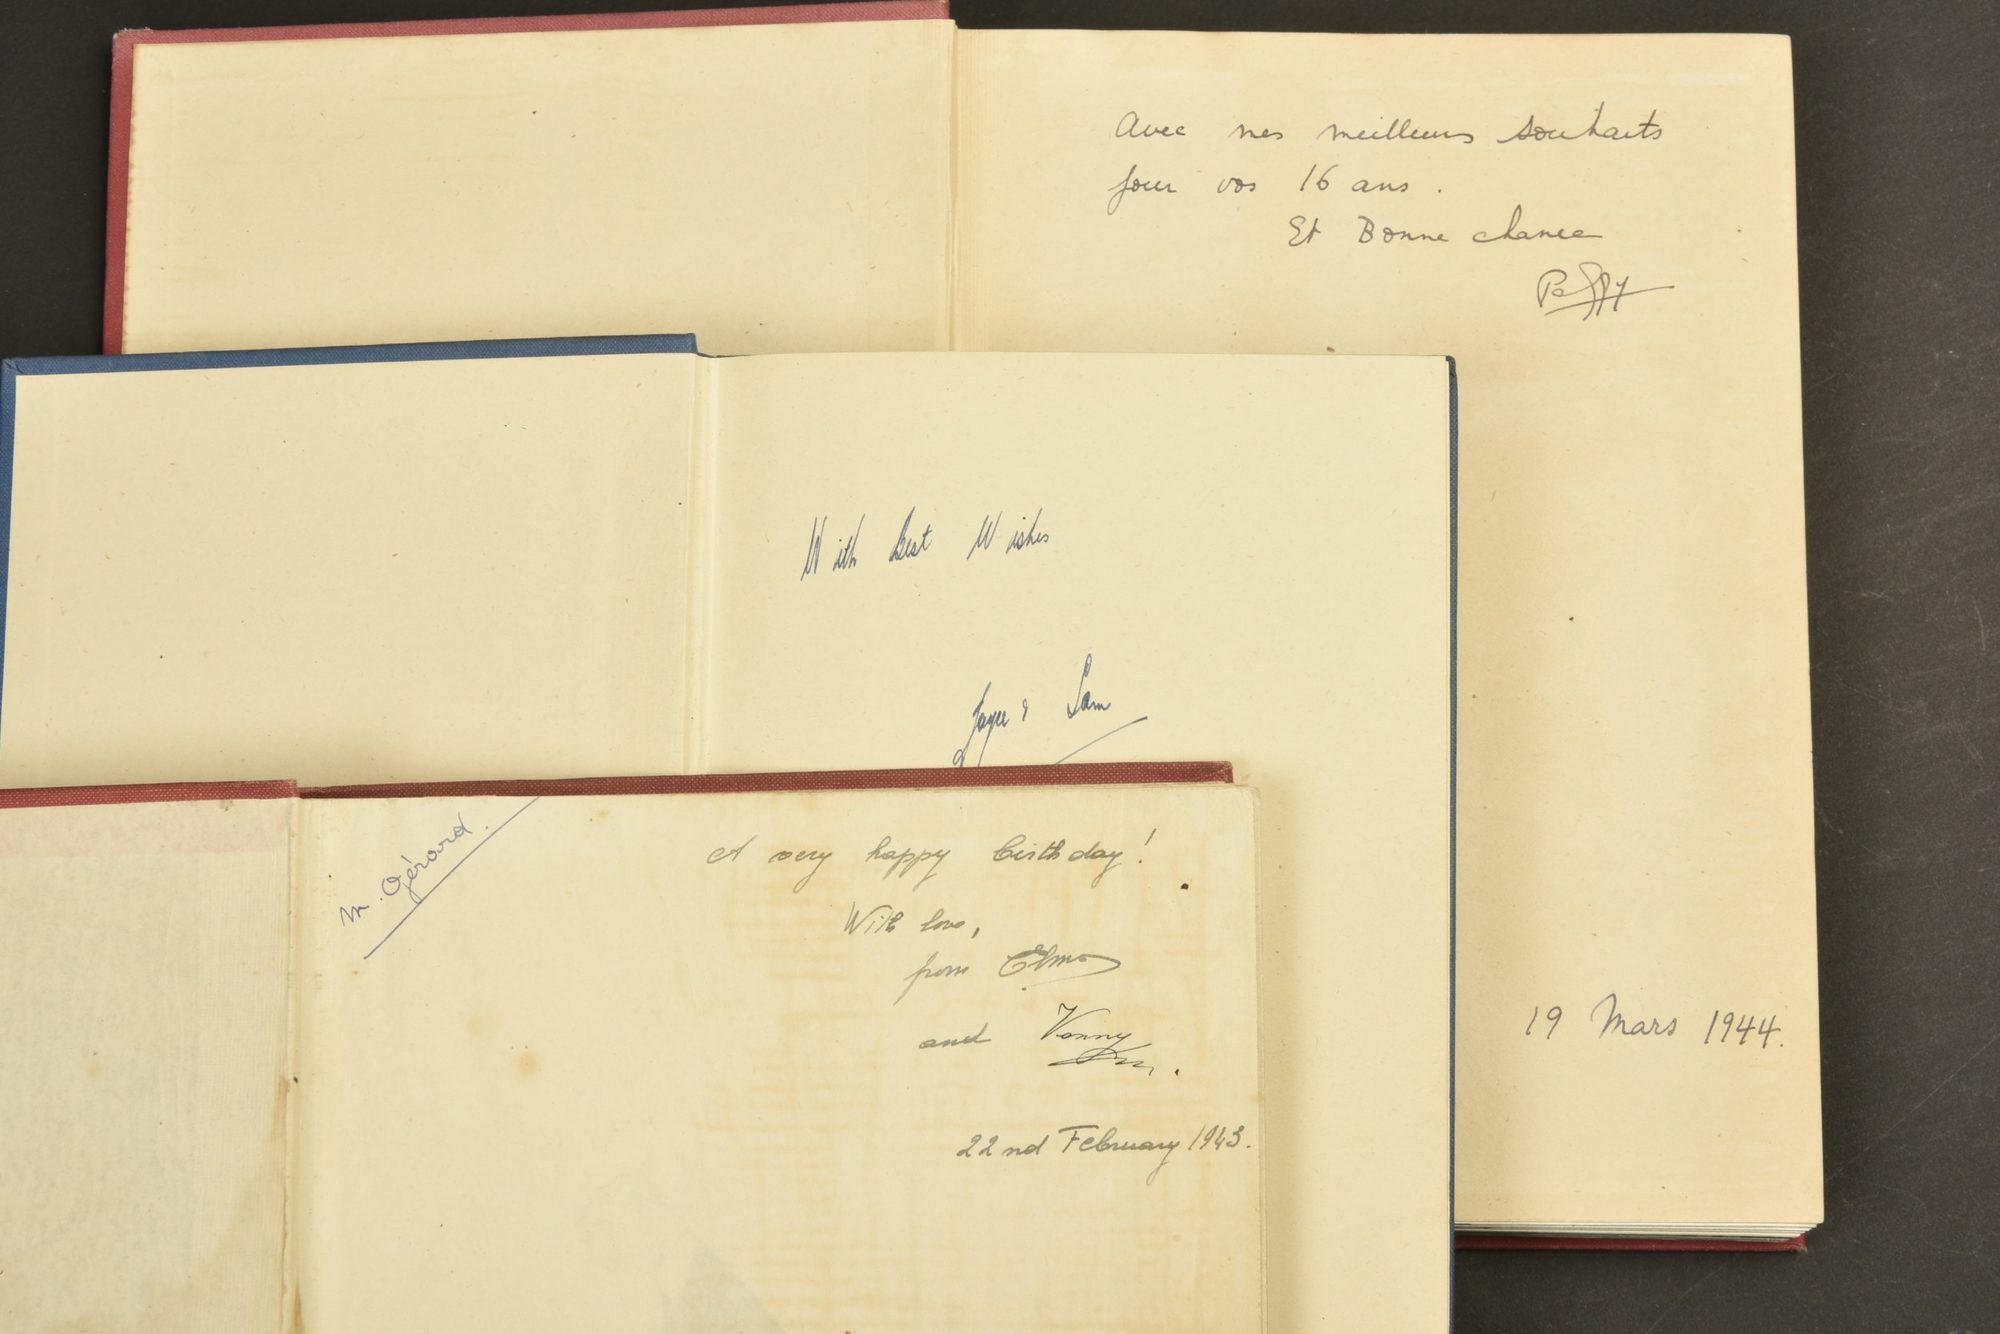 Avec mes meilleurs souhaits
pour vos 16 ans.
Et Bonne chance
19 Mars 1944.
With Best Wishes
Joyce & Sam
M. Gérard.
A very happy birthday!
With love,
from Elmo
and Vonny
22nd February 1943.